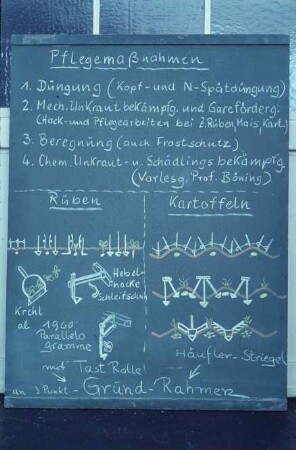 Pflegemaßnahmen
1. Düngung (Kopf- und N-Spätdüngung)
2. Mech. Unkrautbekämpfg. und Gareförderg.
(Hack- und Pflegearbeiten bei Z.Rüben, Mais, Kart.)
3. Beregnung (auch Frostschutz)
4. Chem. Unkraut- u. Schädlingsbekämpfg.
(Vorlesg. Prof. Böning)
Rüben
Kartoffeln
Hebel-
hacke
Schleifschuh
Krehl
ab 1960
Parallelo
gramme
mit Tast Rolle!
Häufler-Striegel
an 3 Punkt - Gründ-Rahmen